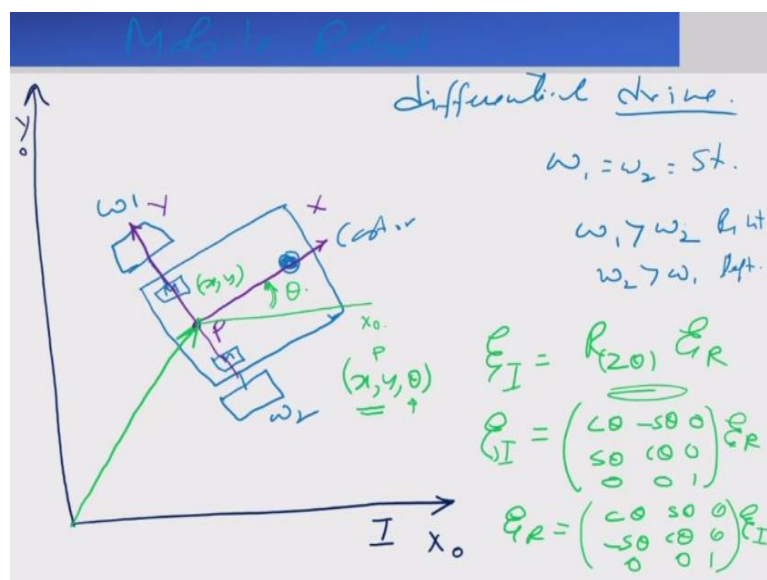 Mobile Robot
differential drive.
ω₁ = ω₂ = St.
ω₁ > ω₂ Right
ω₂ > ω₁ left.
Y₀
ω1 Y
X
Castor
M (x,y)
θ.
X₀.
P
M
ω₂
P
(x,y,θ)
↑
ξ_I = R(zθ) ξ_R
ξ_I = ( cθ -sθ 0
sθ cθ 0
0 0 1 ) ξ_R
ξ_R = ( cθ sθ 0
-sθ cθ 0
0 0 1 ) ξ_I
I X₀